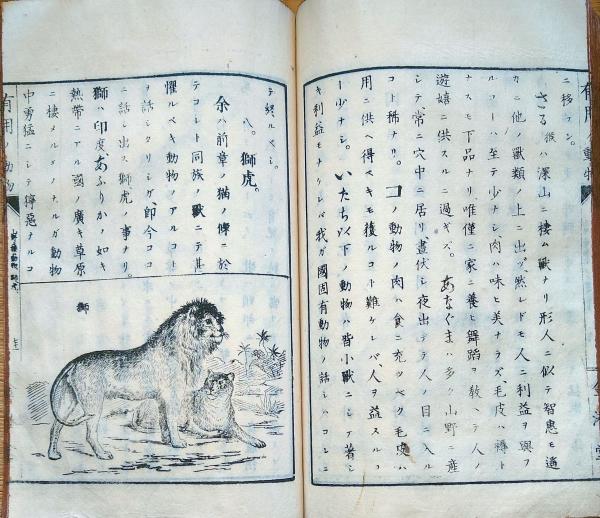 ニ移ラン。
さる 猴ハ深山ニ棲ム獸ナリ形人ニ似テ智惠モ遙
カニ他ノ獸類ノ上ニ出ヅ然レドモ人ニ利益ヲ與フ
ルコーハ至テ少ナシ、肉ハ味ヒ美ナラズ、毛皮ハ褥ト
ナスモ下品ナリ唯僅ニ家ニ養ヒ舞蹈ヲ敎ヘテ人ノ
遊嬉ニ供スルニ過ギズ。あなぐまハ多ク山野ニ産
シテ常ニ穴中ニ居リ晝伏シ夜出デテ人ノ目ニ入ル
コト稀ナリ。コノ動物ノ肉ハ食ニ充ツベク毛皮ハ
用ニ供ヘ得ベキモ獲ルコト難ケレバ、人ヲ益スルコ
ー少ナシ。いたち以下ノ動物ハ皆小獸ニシテ著シ
キ利益モナケレバ我ガ國固有動物ノ話シハコレニ
テ終ルベシ。
八。獅虎。
余ハ前章ノ猫ノ條ニ於
テコレト同族ノ獸ニテ甚
懼ルベキ動物ノアルコト
ヲ話シタリシガ、即今ココ
ニ話シ出ス獅虎ノ事ナリ。
獅ハ印度あふりかノ如キ
熱帶ニアル國ノ廣キ草原
ニ棲メルモノナルガ動物
中勇猛ニシテ獰惡ナルコ
獅
有用 動物